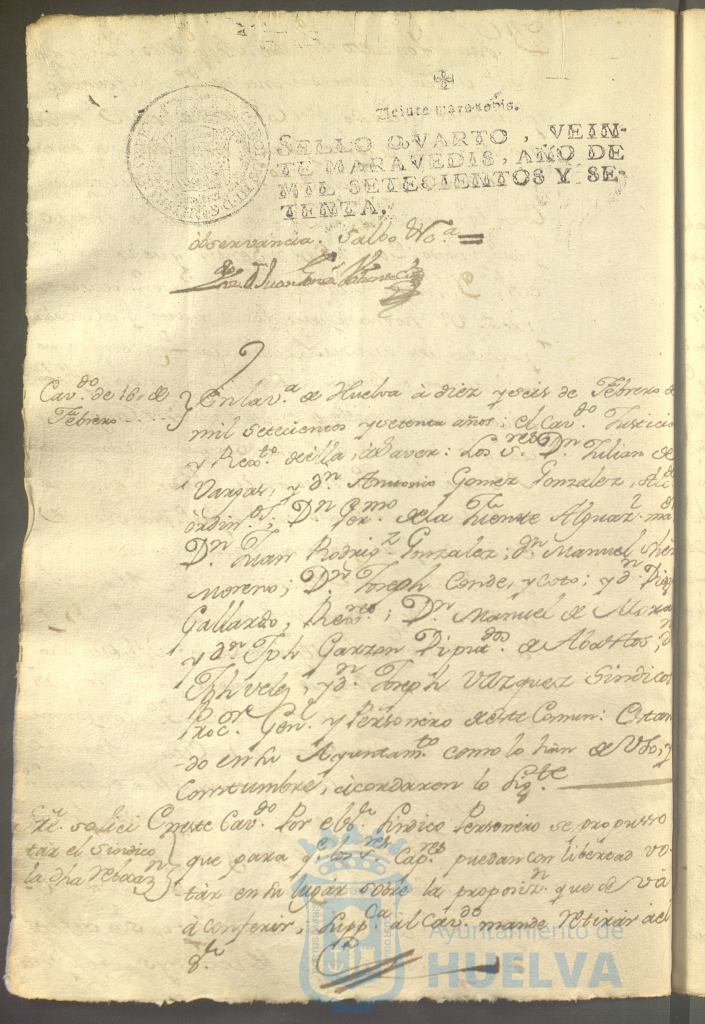 Veinte maravedis.
SELLO QVARTO, VEIN-
TE MARAVEDIS, AÑO DE
MIL SETECIENTOS Y SE-
TENTA.
observancia. Salbo
Cav.do de 16, de
Febrero
En la v.a de Huelva à diez y seis de Febrero de
mil setecientos y setenta años; el Cav.do Justicia
y Rex.to de ella, à saver: Los S.res D.n Julian de
Vargas, y d.n Antonio Gomez Gonzalez, Alc.des
ordin.os; D.n Ger.mo de la Fuente Alguaz.l ma
D.n Juan Rodrig.z Gonzalez; d.n Manuel
Moreno; D.n Joseph Conde, y Coto; y d.n Dieg
Gallardo, Rex.res; D.n Manuel de Mora
y d.n Jph Garzon Diputados de Abastos; d
Jph Velez, y d.n Joseph Vazquez Sindicos
Proc.or Gen. y Personero de este Comun: Estan
do en su Ayuntam.to como lo han de Uso, y
Constumbre, acordaron lo sig.te
solici
tar el Sindico
la dha
En este Cav.do Por el Sindico Personero se propuso
que para q.e los S.res Cap.res puedan con libertad vo
tàr en su lugar sobre la proposiz.n que de và
à conferir, Supp.ca al Cav.do mande retirar àl
Ayuntamiento de
HUELVA